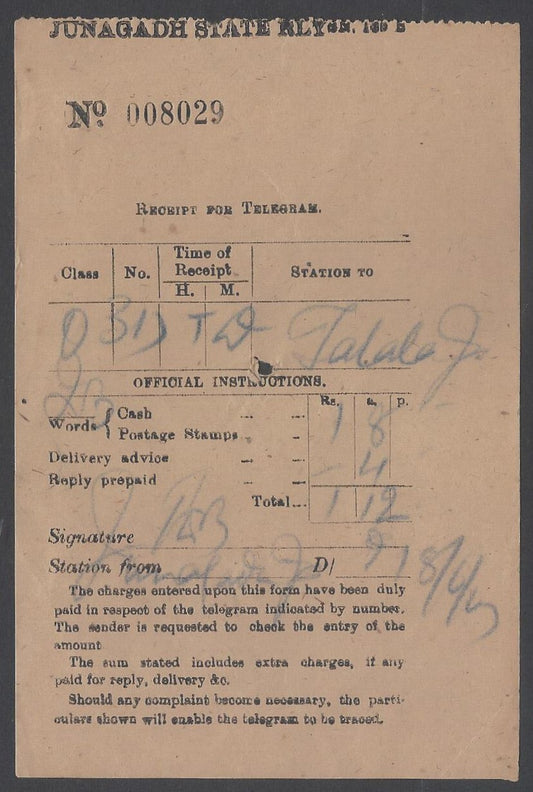 JUNAGADH STATE RLY
No. 008029
RECEIPT FOR TELEGRAM.
Class No. Time of Receipt H. M. STATION TO
Talala Jn
OFFICIAL INSTRUCTIONS.
Rs. a. p.
Words { Cash 1 8
Postage Stamps
Delivery advice
Reply prepaid - 4
Total... 1 12
Signature
Station from D/
The charges entered upon this form have been duly
paid in respect of the telegram indicated by number.
The sender is requested to check the entry of the
amount
The sum stated includes extra charges, if any
paid for reply, delivery &c.
Should any complaint become necessary, the parti-
culars shown will enable the telegram to be traced.